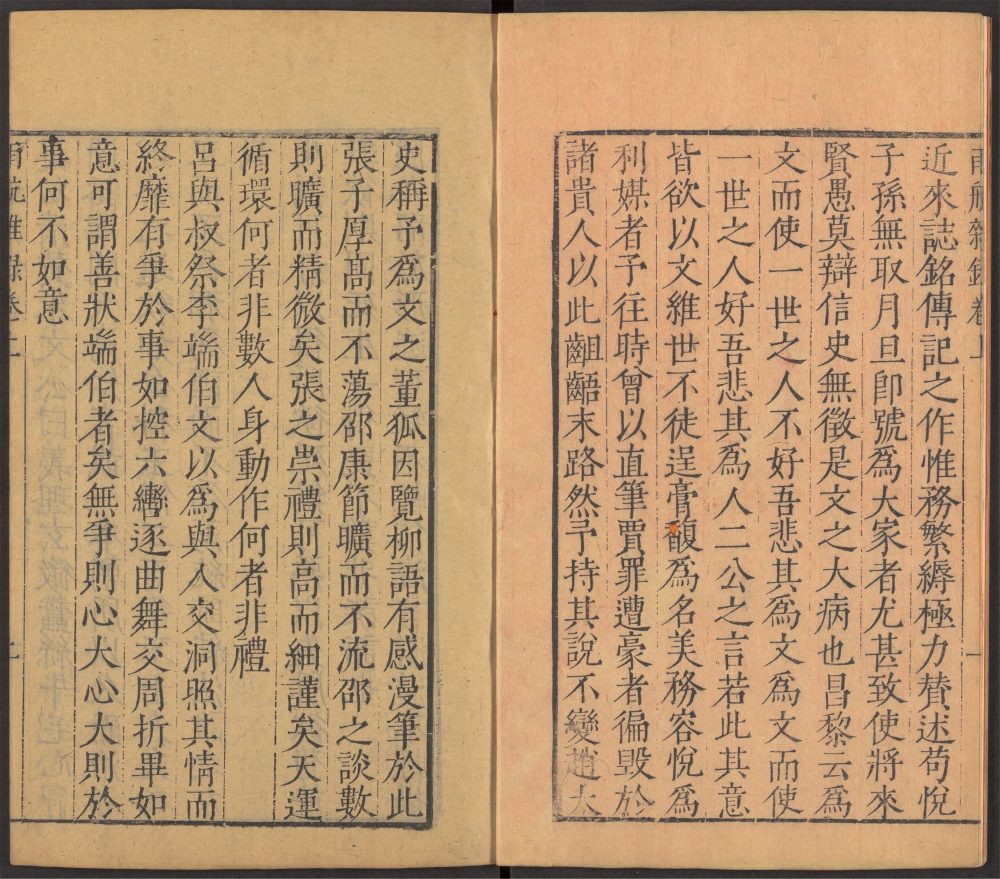 甬觚雜錄卷上
近來誌銘傳記之作惟務繁縟極力賛述苟悅
子孫無取月旦卽號爲大家者尤甚致使將來
賢愚莫辯信史無徵是文之大病也昌黎云爲
文而使一世之人不好吾悲其爲文爲文而使
一世之人好吾悲其爲人二公之言若此其意
皆欲以文維世不徒逞膏馥爲名美務容悅爲
利媒者予往時曾以直筆賈罪遭豪者徧毀於
諸貴人以此齟齬末路然予持其說不變趙太
史稱予爲文之董狐因覽柳語有感漫筆於此
張子厚高而不蕩邵康節曠而不流邵之談數
則曠而精微矣張之崇禮則高而細謹矣天運
循環何者非數人身動作何者非禮
呂與叔祭李端伯文以爲與人交洞照其情而
終靡有爭於事如控六轡逐曲舞交周折畢如
意可謂善狀端伯者矣無爭則心大心大則於
事何不如意